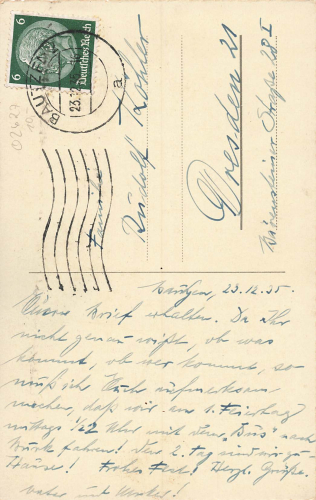 6 6
Deutsches Reich
BAUTZEN
23.12.
a
02427
Familie
Rudolf Köhler
Dresden 21
Bärensteiner Straße 22 I
Bautzen, 23.12.35.
Brief erhalten. Da Ihr
nicht genau wißt, ob was
kommt, ob wer kommt, so
muß ich Euch aufmerksam
machen, daß wir am 1. Feiertag
mittags 12 Uhr mit dem „Bus" nach
fahren! Den 2. Tag sind wir zu
Hause! Frohes Fest! Herzl. Grüße
Vater und Mutter!